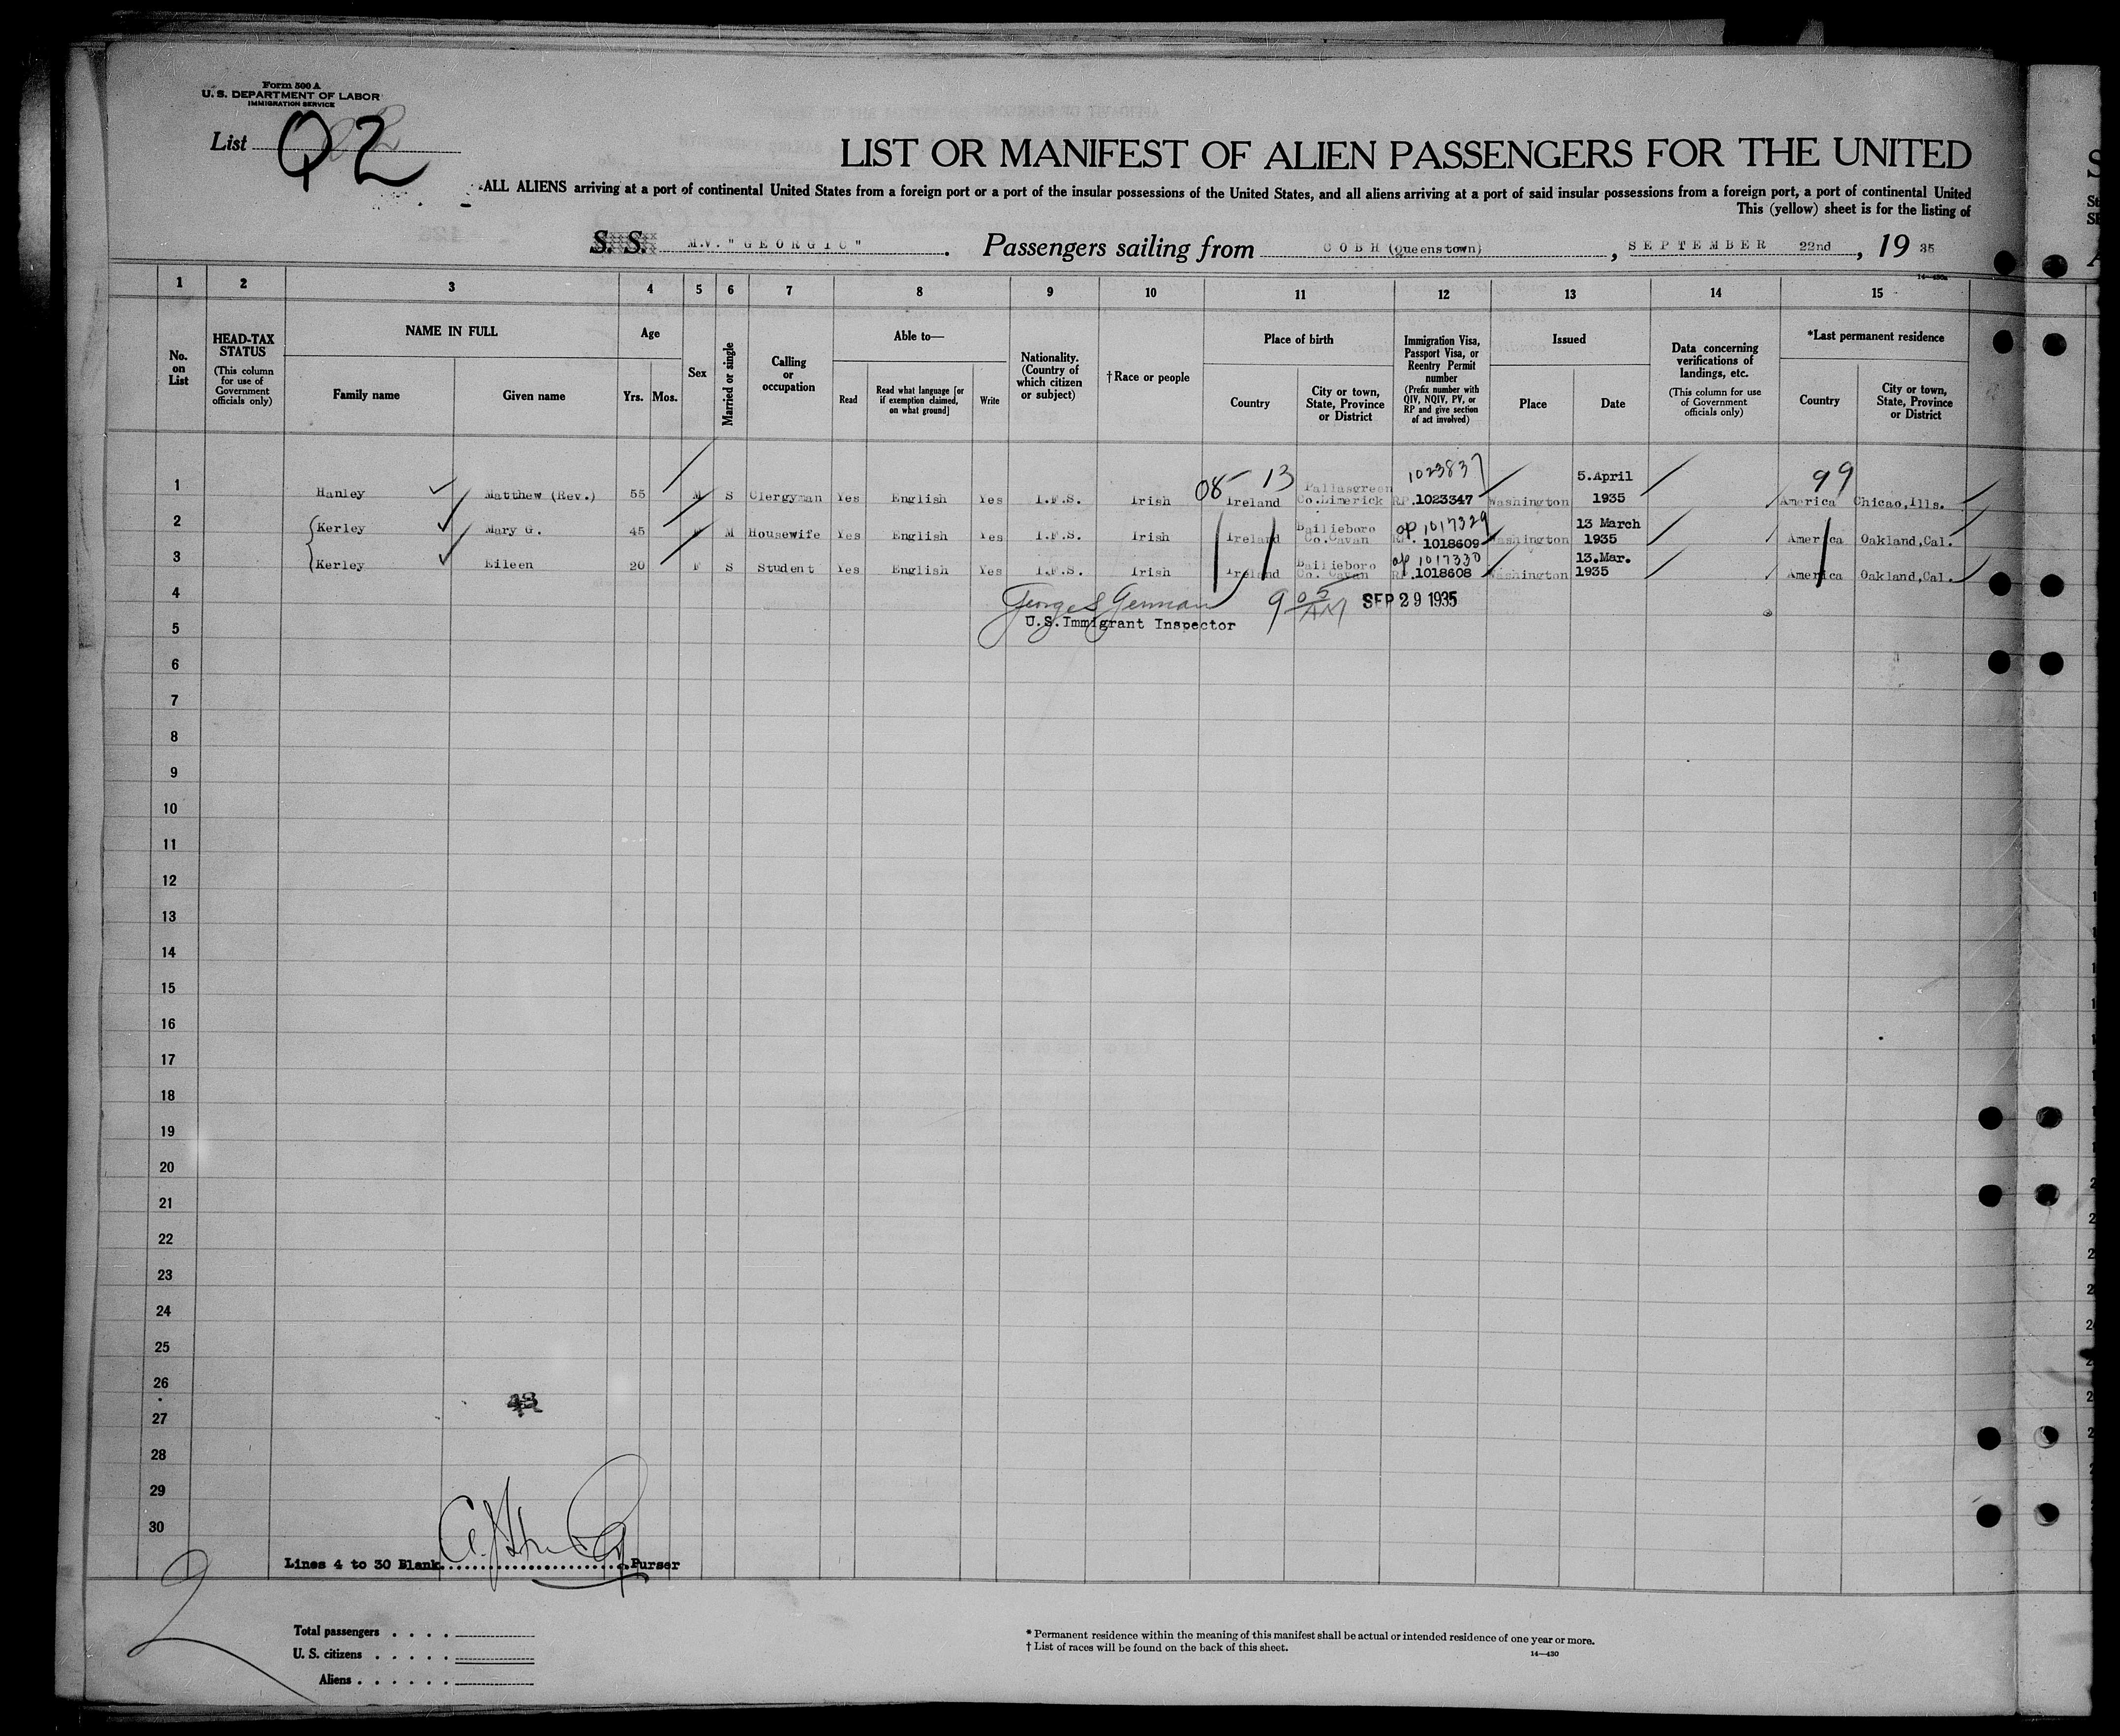 Form 500 A
U. S. DEPARTMENT OF LABOR
IMMIGRATION SERVICE
List Q2
LIST OR MANIFEST OF ALIEN PASSENGERS FOR THE UNITED
ALL ALIENS arriving at a port of continental United States from a foreign port or a port of the insular possessions of the United States, and all aliens arriving at a port of said insular possessions from a foreign port, a port of continental United
This (yellow) sheet is for the listing of
S. S. M.V. "GEORGIC". Passengers sailing from COBH (Queenstown), SEPTEMBER 22nd, 19 35
14—430a
1 2 3 4 5 6 7 8 9 10 11 12 13 14 15
No. on List
HEAD-TAX STATUS
(This column for use of Government officials only)
NAME IN FULL
Family name
Given name
Age
Yrs. Mos.
Sex
Married or single
Calling or occupation
Able to—
Read
Read what language [or if exemption claimed, on what ground]
Write
Nationality. (Country of which citizen or subject)
†Race or people
Place of birth
Country
City or town, State, Province or District
Immigration Visa, Passport Visa, or Reentry Permit number
(Prefix number with QIV, NQIV, PV, or RP and give section of act involved)
Issued
Place
Date
Data concerning verifications of landings, etc.
(This column for use of Government officials only)
*Last permanent residence
Country
City or town, State, Province or District
08 13 1023837 5.April 99
1 Hanley Matthew (Rev.) 55 M S Clergyman Yes English Yes I.F.S. Irish Ireland Pallasgreen Co.Limerick RP.1023347 Washington 1935 America Chicao,Ills.
2 Kerley Mary G. 45 F M Housewife Yes English Yes I.F.S. Irish Ireland Bailieboro Co.Cavan op 1017329 RP. 1018609 Washington 13 March 1935 America Oakland,Cal.
3 Kerley Eileen 20 F S Student Yes English Yes I.F.S. Irish Ireland Bailieboro Co. Cavan op 1017330 RP.1018608 Washington 13.Mar. 1935 America Oakland,Cal.
4 George S German 9 05 AM SEP 29 1935
5 U.S.Immigrant Inspector
6
7
8
9
10
11
12
13
14
15
16
17
18
19
20
21
22
23
24
25
26
27
28
29
30
Lines 4 to 30 Blank Purser
2
Total passengers
U. S. citizens
Aliens
* Permanent residence within the meaning of this manifest shall be actual or intended residence of one year or more.
† List of races will be found on the back of this sheet.
14—430